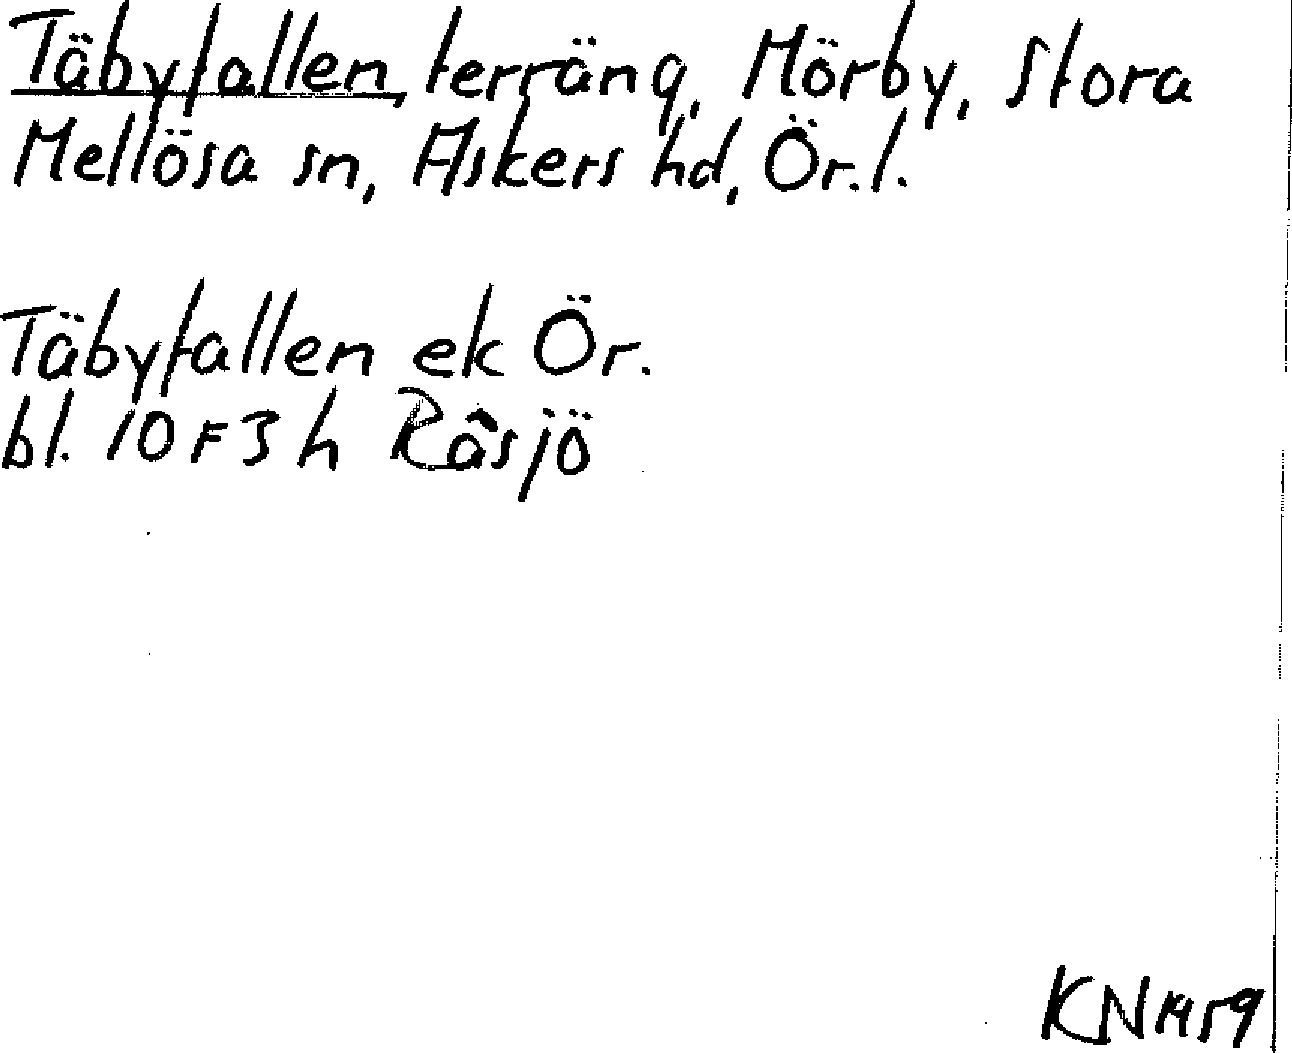 Täbyfallen, terräng, Mörby, Stora
Mellösa sn, Askers hd, Ör.l.
Täbyfallen ek Ör.
bl. 10 F 3 h Råsjö
KN 1959